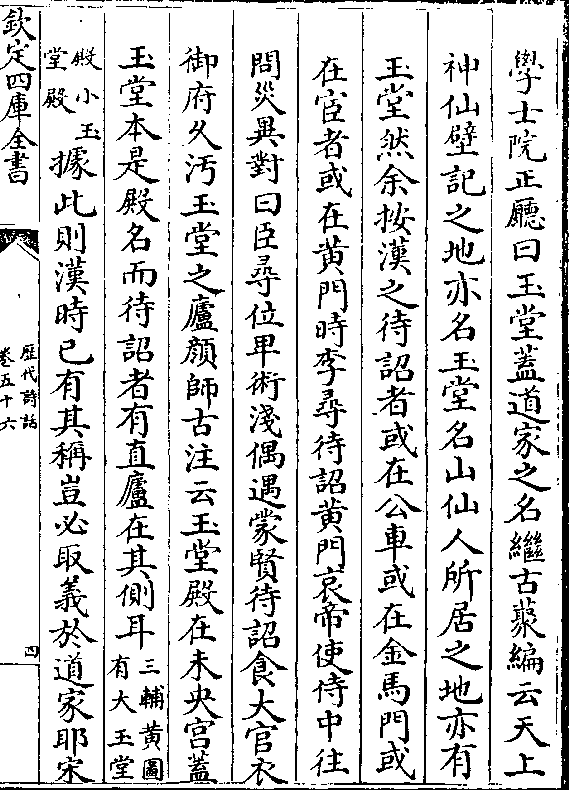 學士院正廳曰玉堂蓋道家之名繼古藂編云天上
神仙壁記之地亦名玉堂名山仙人所居之地亦有
玉堂然余按漢之待詔者或在公車或在金馬門或
在宦者或在黄門時李尋待詔黄門哀帝使侍中往
問災異對曰臣尋位卑術淺偶遇蒙賢待詔食大官衣
御府久汚玉堂之廬顔師古注云玉堂殿在未央宫蓋
玉堂本是殿名而待詔者有直廬在其側耳三輔黄圖
有大玉堂
殿小玉
堂殿據此則漢時已有其稱豈必取義於道家耶宋
欽定四庫全書
歷代詩話
卷五十六
四